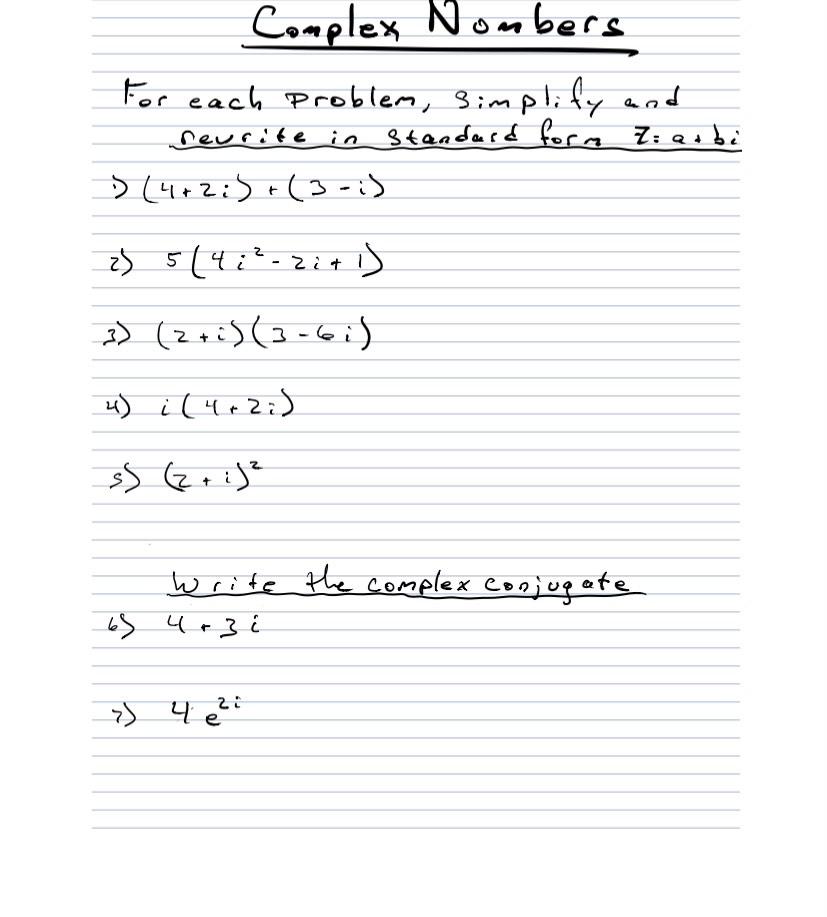 Complex Numbers
For each problem, simplify and
rewrite in standard form Z = a + bi
1) (4 + 2i) + (3 - i)
2) 5(4i² - 2i + 1)
3) (2 + i)(3 - 6i)
4) i(4 + 2i)
5) (2 + i)²
Write the complex conjugate
6) 4 + 3i
7) 4e²ⁱ